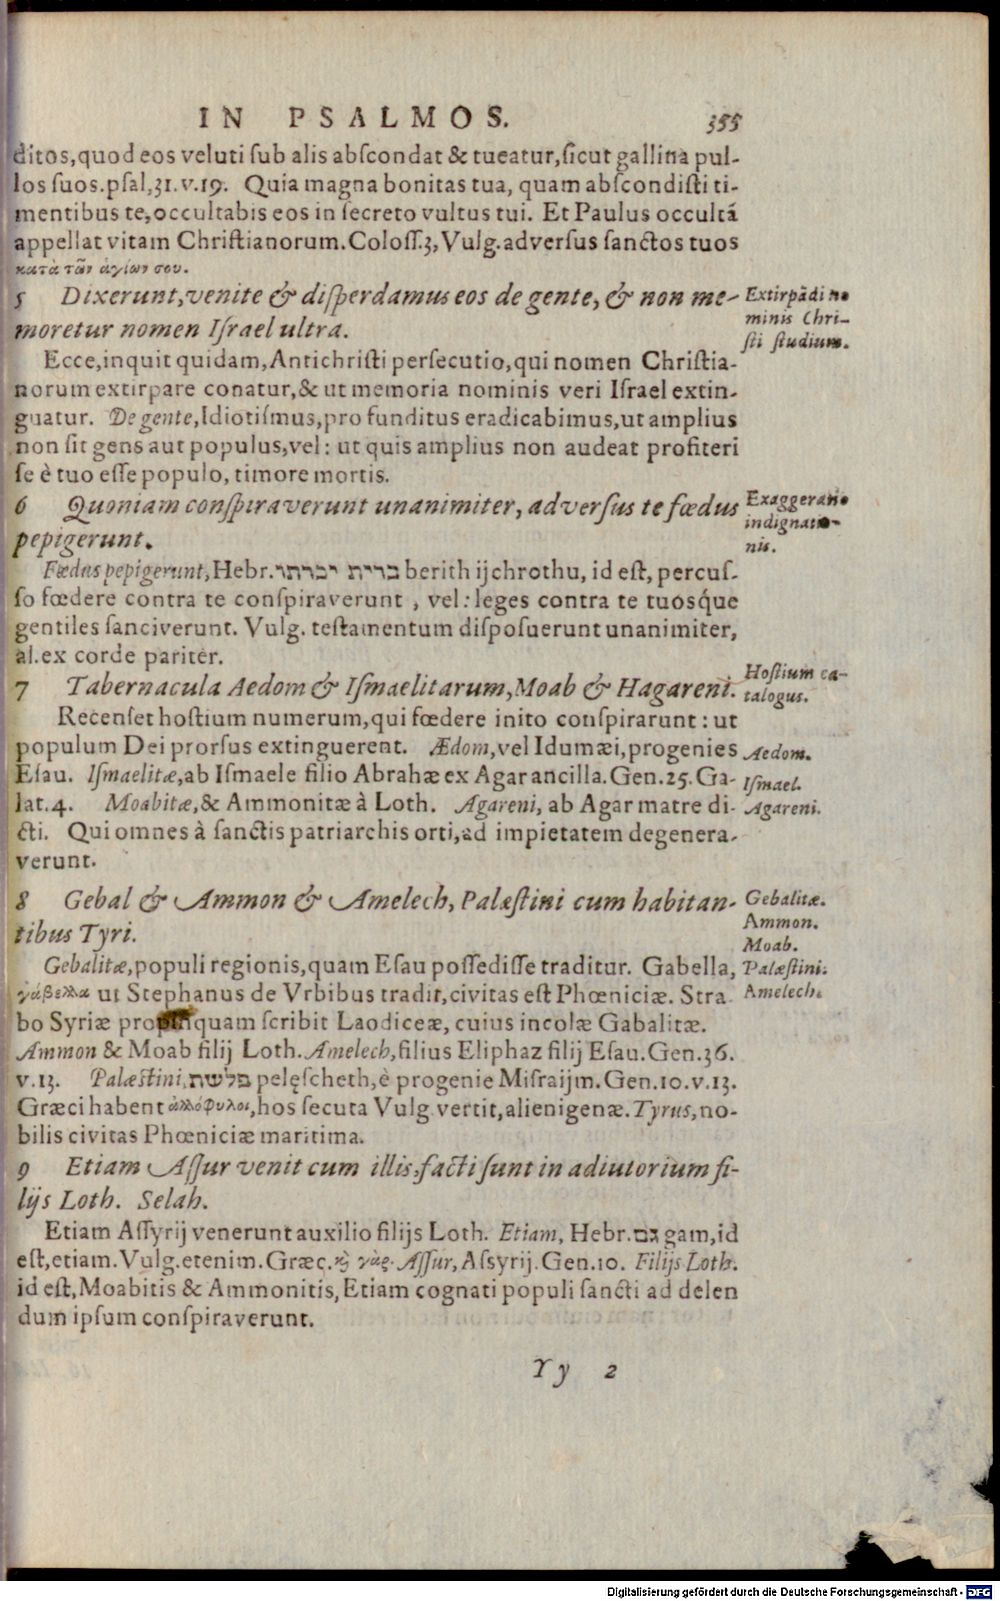 IN PSALMOS. 355
ditos, quod eos veluti ſub alis abſcondat & tueatur, ſicut gallina pul-
los ſuos. pſal, 31. v. 19. Quia magna bonitas tua, quam abſcondiſti ti-
mentibus te, occultabis eos in ſecreto vultus tui. Et Paulus occultā
appellat vitam Chriſtianorum. Coloſſ. 3, Vulg. adverſus ſanctos tuos
κατὰ τῶν ἁγίων σου.
5 Dixerunt, venite & diſperdamus eos de gente, & non me-
moretur nomen Iſrael ultra.
Extirpādi no
minis Chri-
ſti ſtudium.
Ecce, inquit quidam, Antichriſti perſecutio, qui nomen Chriſtia-
norum extirpare conatur, & ut memoria nominis veri Iſrael extin-
guatur. De gente, Idiotiſmus, pro funditus eradicabimus, ut amplius
non ſit gens aut populus, vel: ut quis amplius non audeat profiteri
ſe è tuo eſſe populo, timore mortis.
6 Quoniam conſpiraverunt unanimiter, adverſus te fœdus
pepigerunt.
Exaggeratio
indignatio-
nis.
Fœdus pepigerunt, Hebr. ברית יכרתו berith ijchrothu, id eſt, percuſ-
ſo fœdere contra te conſpiraverunt, vel: leges contra te tuosq́ue
gentiles ſanciverunt. Vulg. teſtamentum diſpoſuerunt unanimiter,
al. ex corde pariter.
7 Tabernacula Aedom & Iſmaelitarum, Moab & Hagareni.
Hoſtium ca-
talogus.
Recenſet hoſtium numerum, qui fœdere inito conſpirarunt: ut
populum Dei prorſus extinguerent. Ædom, vel Idumæi, progenies
Eſau. Iſmaelitæ, ab Iſmaele filio Abrahæ ex Agar ancilla. Gen. 25. Ga-
lat. 4. Moabitæ, & Ammonitæ à Loth. Agareni, ab Agar matre di-
cti. Qui omnes à ſanctis patriarchis orti, ad impietatem degenera-
verunt.
Aedom.
Iſmael.
Agareni.
8 Gebal & Ammon & Amelech, Palæſtini cum habitan-
tibus Tyri.
Gebalitæ.
Ammon.
Moab.
Palæſtini.
Amelech.
Gebalitæ, populi regionis, quam Eſau poſſediſſe traditur. Gabella,
γάβελλα ut Stephanus de Vrbibus tradit, civitas eſt Phœniciæ. Stra
bo Syriæ propinquam ſcribit Laodiceæ, cuius incolæ Gabalitæ.
Ammon & Moab filij Loth. Amelech, filius Eliphaz filij Eſau. Gen. 36.
v. 13. Palæſtini, פלשת pelęſcheth, è progenie Miſraijm. Gen. 10. v. 13.
Græci habent ἀλλόφυλοι, hos ſecuta Vulg. vertit, alienigenæ. Tyrus, no-
bilis civitas Phœniciæ maritima.
9 Etiam Aſſur venit cum illis, facti ſunt in adiutorium fi-
lijs Loth. Selah.
Etiam Aſſyrij venerunt auxilio filijs Loth. Etiam, Hebr. גם gam, id
eſt, etiam. Vulg. etenim. Græc. καὶ γὰρ. Aſſur, Aſsyrij. Gen. 10. Filijs Loth.
id eſt, Moabitis & Ammonitis, Etiam cognati populi ſancti ad delen
dum ipſum conſpiraverunt.
Yy 2
Digitalisierung gefördert durch die Deutsche Forschungsgemeinschaft - DFG